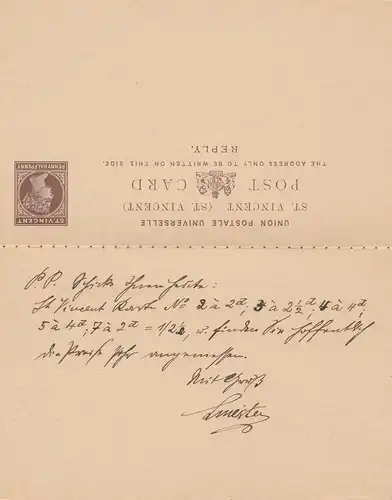 UNION POSTALE UNIVERSELLE
ST. VINCENT (ST. VINCENT)
POST CARD
THE ADDRESS ONLY TO BE WRITTEN ON THIS SIDE.
REPLY.
ST. VINCENT
PENNY HALFPENNY
P.P. Schicke Ihnen heute:
St Vincent Karte No 2 à 2d; 3 à 2½d; 4 à 4d;
5 à 4d; 7 à 2d = 1/2½, u. finden Sie hoffentlich
die Preise sehr angemessen.
Mit Gruß